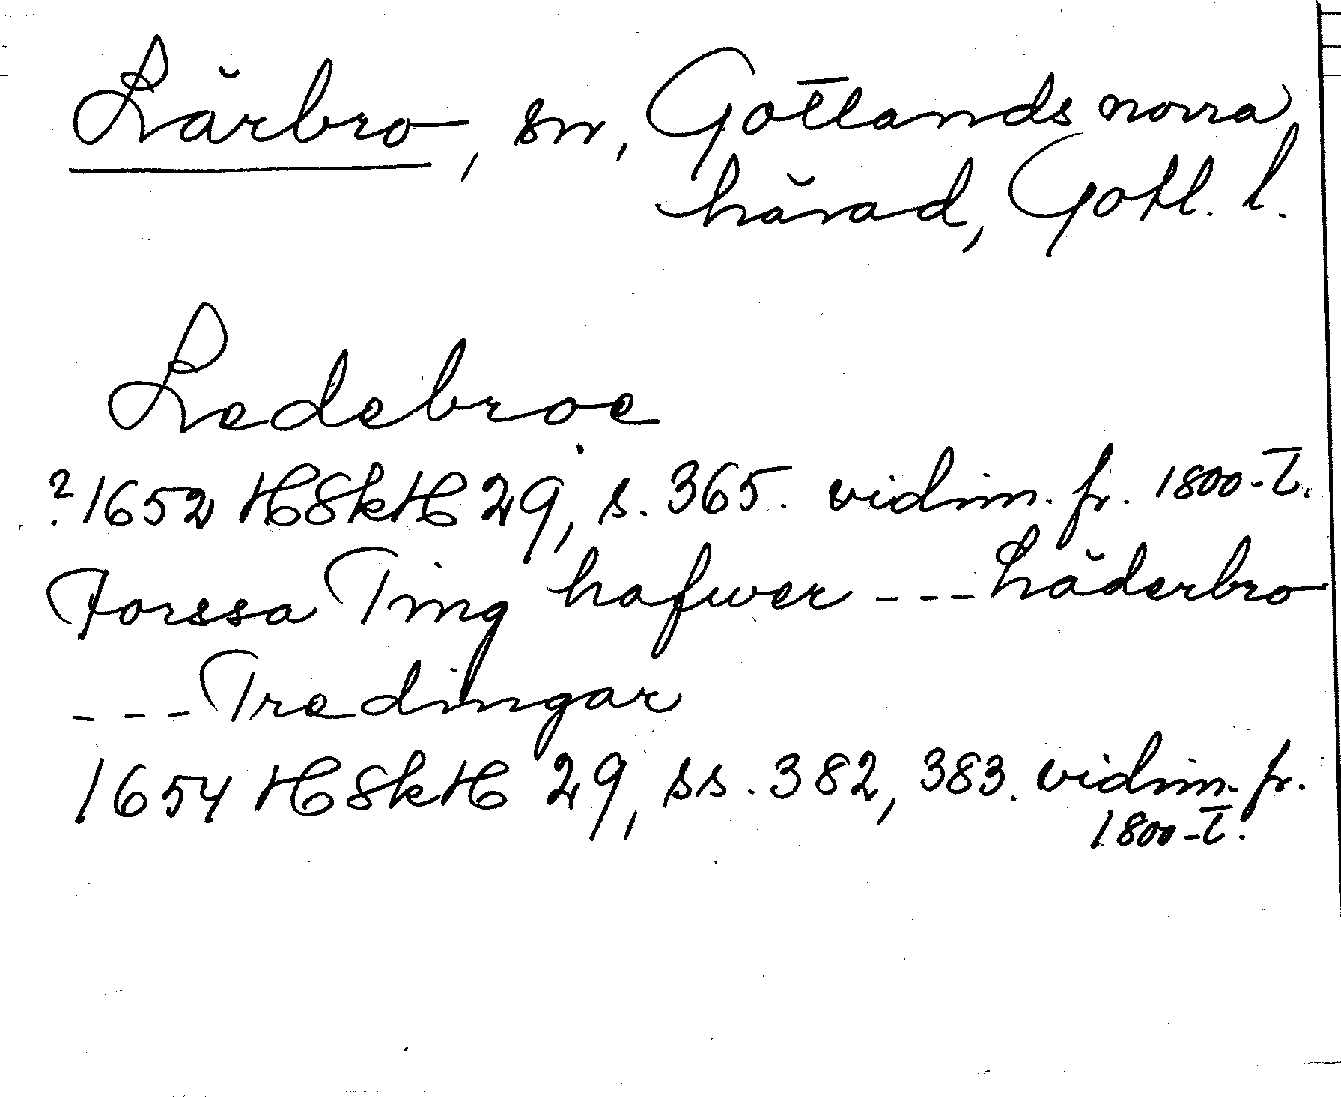 Lärbro, sn, Gotlands norra
härad, Gotl. l.
Ledebroe
? 1652 HSkH 29, s. 365. vidim. fr. 1800-t.
Forssa Ting hafwer --- Läderbro
--- Tredingar
1654 HSkH 29, ss. 382, 383. vidim. fr.
1800-t.